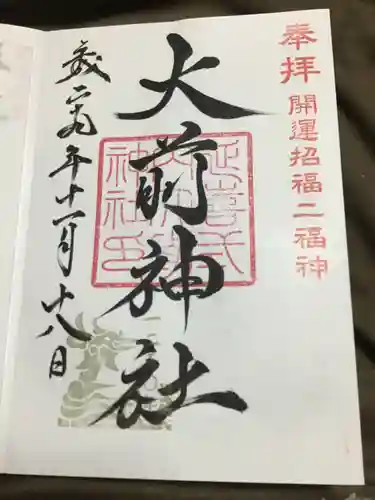 奉拝
開運招福二福神
大前神社
延喜式
内大前
神社印
二九年十一月十八日